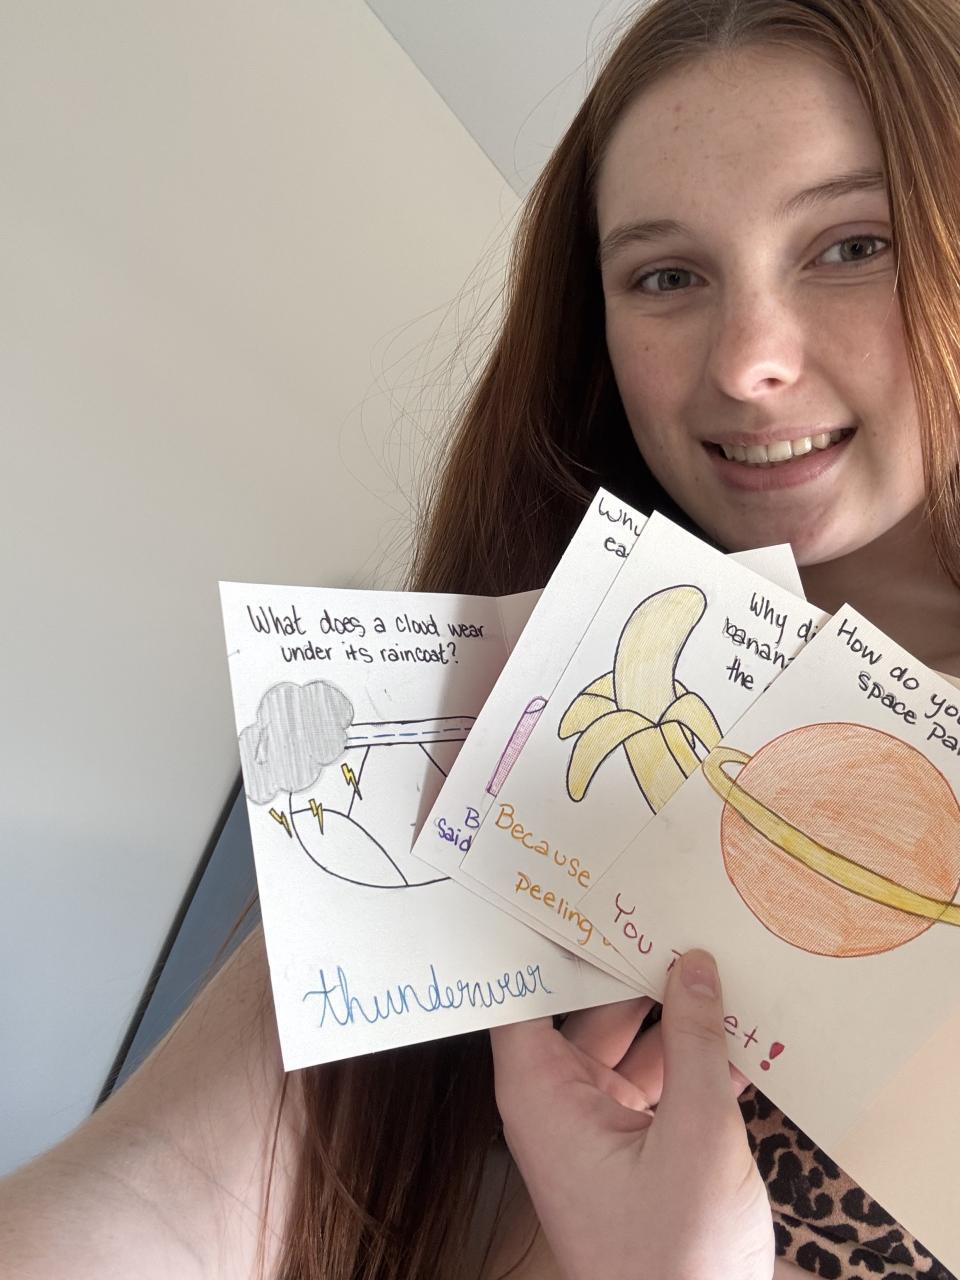 What does a cloud wear
under its raincoat?
thunderwear
Why
Said
Why
the
Because
Peeling
How do you
Space
You
!